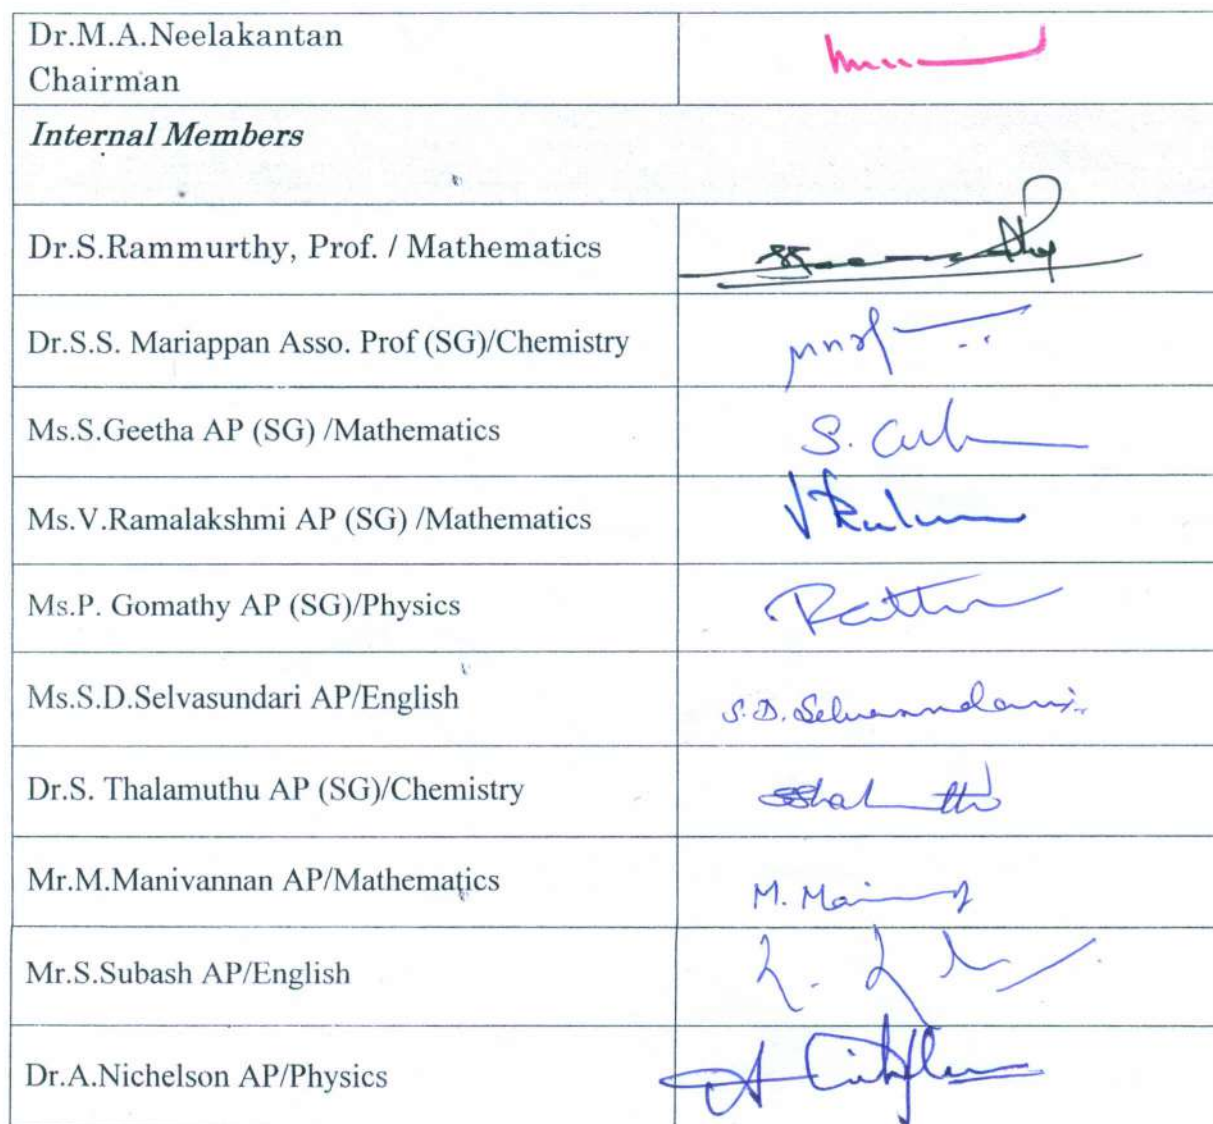 Dr.M.A.Neelakantan
Chairman
Internal Members
Dr.S.Rammurthy, Prof. / Mathematics
Dr.S.S. Mariappan Asso. Prof (SG)/Chemistry
Ms.S.Geetha AP (SG) /Mathematics
S.
Ms.V.Ramalakshmi AP (SG) /Mathematics
Ms.P. Gomathy AP (SG)/Physics
Ms.S.D.Selvasundari AP/English
S.D.
Dr.S. Thalamuthu AP (SG)/Chemistry
Mr.M.Manivannan AP/Mathematics
M.
Mr.S.Subash AP/English
Dr.A.Nichelson AP/Physics